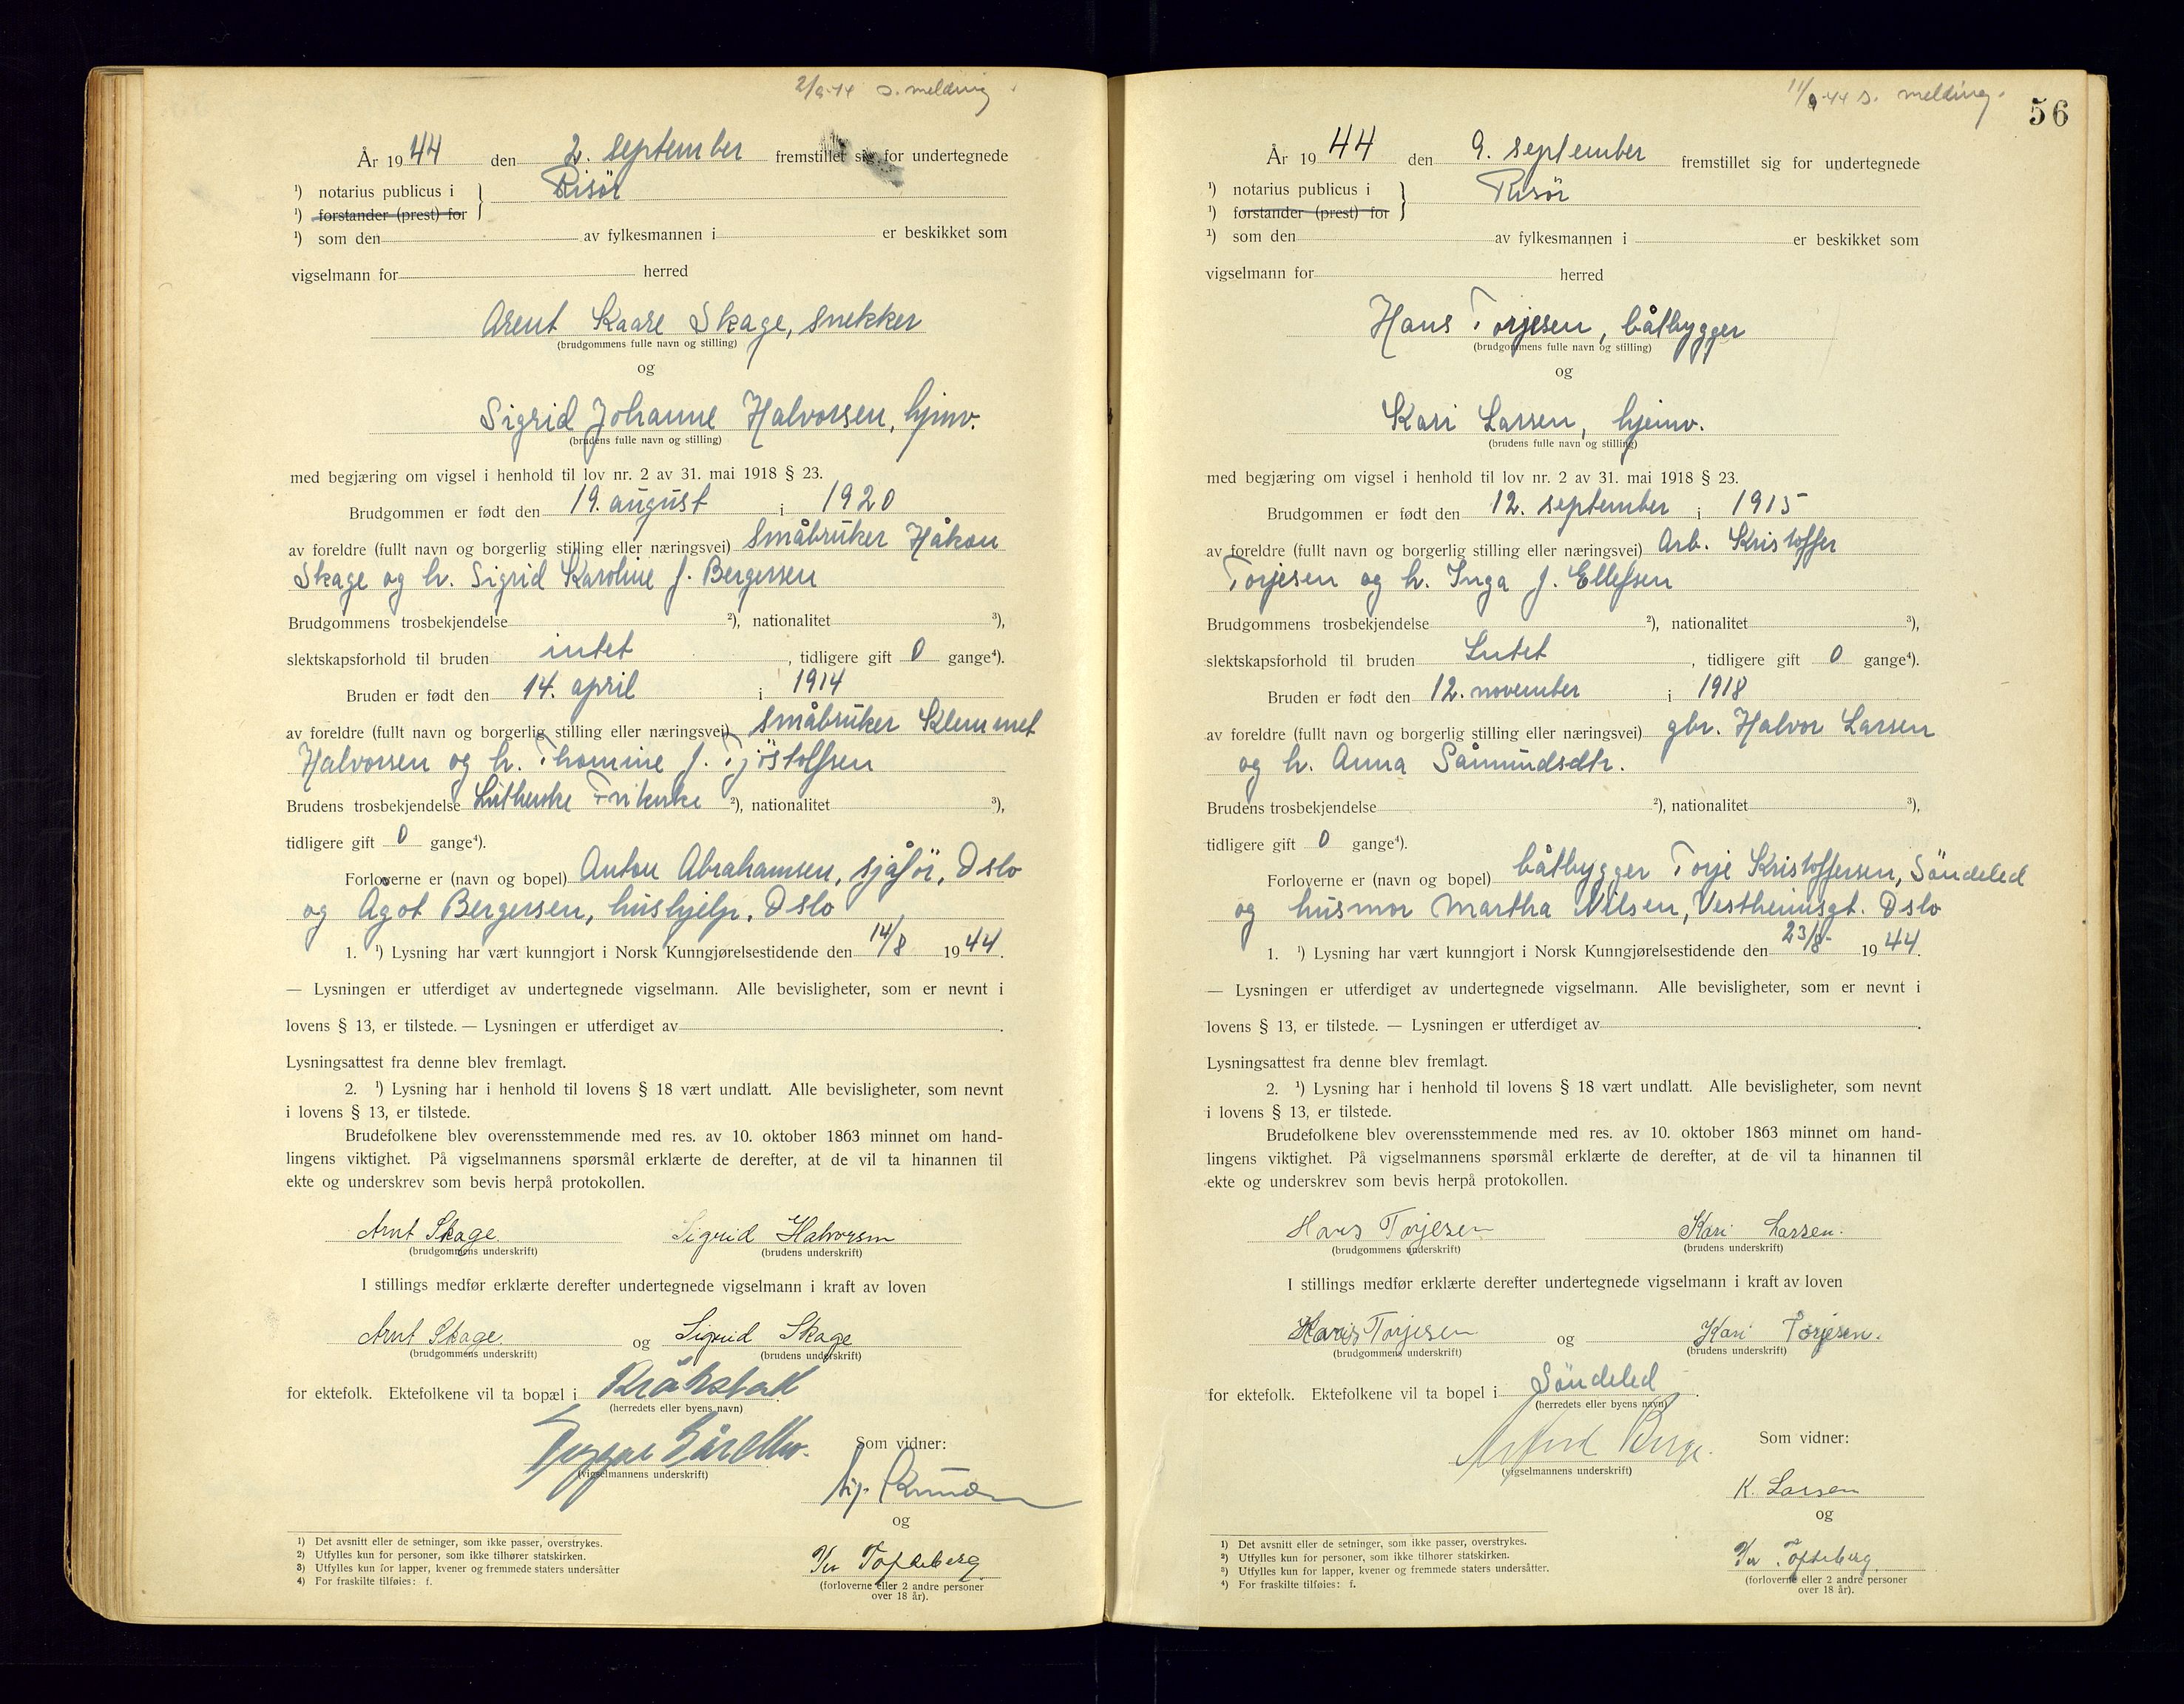 2/9-44 s. melding
År 1944 den 2. september fremstillet sig for undertegnede
¹) notarius publicus i } Risör
¹) forstander (prest) for
¹) som den av fylkesmannen i er beskikket som
vigselmann for herred
Arent Kaare Skage, snekker
(brudgommens fulle navn og stilling)
og
Sigrid Johanne Halvorsen, hjmv.
(brudens fulle navn og stilling)
med begjæring om vigsel i henhold til lov nr. 2 av 31. mai 1918 § 23.
Brudgommen er født den 19. august i 1920
av foreldre (fullt navn og borgerlig stilling eller næringsvei) småbruker Håkon
Skage og h. Sigrid Karoline f. Bergersen
Brudgommens trosbekjendelse ²), nationalitet ³),
slektskapsforhold til bruden intet, tidligere gift 0 gange⁴).
Bruden er født den 14. april i 1914
av foreldre (fullt navn og borgerlig stilling eller næringsvei) småbruker Klemmet
Halvorsen og h. Thomine f. Tjöstolfsen
Brudens trosbekjendelse Lutherske Frikirke ²), nationalitet ³),
tidligere gift 0 gange⁴).
Forloverne er (navn og bopel) Anton Abrahamsen, sjåför, Oslo
og Ågot Bergersen, hushjelp, Oslo
1. ¹) Lysning har vært kunngjort i Norsk Kunngjørelsestidende den 14/8 1944.
— Lysningen er utferdiget av undertegnede vigselmann. Alle bevisligheter, som er nevnt i
lovens § 13, er tilstede. — Lysningen er utferdiget av .
Lysningsattest fra denne blev fremlagt.
2. ¹) Lysning har i henhold til lovens § 18 vært undlatt. Alle bevisligheter, som nevnt
i lovens § 13, er tilstede.
Brudefolkene blev overensstemmende med res. av 10. oktober 1863 minnet om hand-
lingens viktighet. På vigselmannens spørsmål erklærte de derefter, at de vil ta hinannen til
ekte og underskrev som bevis herpå protokollen.
Arnt Skage. Sigrid Halvorsen
(brudgommens underskrift) (brudens underskrift)
I stillings medfør erklærte derefter undertegnede vigselmann i kraft av loven
Arnt Skage. og Sigrid Skage
(brudgommens underskrift) (brudens underskrift)
for ektefolk. Ektefolkene vil ta bopæl i Kråkstad
(herredets eller byens navn)
Som vidner:
(vigselmannens underskrift)
og
Per Topdeberg
(forloverne eller 2 andre personer
over 18 år).
¹) Det avsnitt eller de setninger, som ikke passer, overstrykes.
²) Utfylles kun for personer, som ikke tilhører statskirken.
³) Utfylles kun for lapper, kvener og fremmede staters undersåtter
⁴) For fraskilte tilføies: f.
11/9-44 s. melding.
56
År 1944 den 9. september fremstillet sig for undertegnede
¹) notarius publicus i } Risör
¹) forstander (prest) for
¹) som den av fylkesmannen i er beskikket som
vigselmann for herred
Hans Torjesen, båtbygger
(brudgommens fulle navn og stilling)
og
Kari Larsen, hjemv.
(brudens fulle navn og stilling)
med begjæring om vigsel i henhold til lov nr. 2 av 31. mai 1918 § 23.
Brudgommen er født den 12. september i 1915
av foreldre (fullt navn og borgerlig stilling eller næringsvei) Arb. Kristoffer
Torjesen og h. Inga f. Ellefsen
Brudgommens trosbekjendelse ²), nationalitet ³),
slektskapsforhold til bruden Intet, tidligere gift 0 gange⁴).
Bruden er født den 12. november i 1918
av foreldre (fullt navn og borgerlig stilling eller næringsvei) gbr. Halvor Larsen
og h. Anna Såmundsdtr.
Brudens trosbekjendelse ²), nationalitet ³),
tidligere gift 0 gange⁴).
Forloverne er (navn og bopel) båtbygger Torje Kristoffersen, Söndeled
og husmor Martha Nilsen, Vestheimsgt. Oslo
1. ¹) Lysning har vært kunngjort i Norsk Kunngjørelsestidende den 23/8- 1944.
— Lysningen er utferdiget av undertegnede vigselmann. Alle bevisligheter, som er nevnt i
lovens § 13, er tilstede. — Lysningen er utferdiget av .
Lysningsattest fra denne blev fremlagt.
2. ¹) Lysning har i henhold til lovens § 18 vært undlatt. Alle bevisligheter, som nevnt
i lovens § 13, er tilstede.
Brudefolkene blev overensstemmende med res. av 10. oktober 1863 minnet om hand-
lingens viktighet. På vigselmannens spørsmål erklærte de derefter, at de vil ta hinannen til
ekte og underskrev som bevis herpå protokollen.
Hans Torjesen Kari Larsen.
(brudgommens underskrift) (brudens underskrift)
I stillings medfør erklærte derefter undertegnede vigselmann i kraft av loven
Hans Torjesen og Kari Torjesen.
(brudgommens underskrift) (brudens underskrift)
for ektefolk. Ektefolkene vil ta bopel i Söndeled.
(herredets eller byens navn)
Berge. Som vidner:
(vigselmannens underskrift)
K. Larsen
og
Per Topdeberg
(forloverne eller 2 andre personer
over 18 år).
¹) Det avsnitt eller de setninger, som ikke passer, overstrykes.
²) Utfylles kun for personer, som ikke tilhører statskirken.
³) Utfylles kun for lapper, kvener og fremmede staters undersåtter.
⁴) For fraskilte tilføies: f.